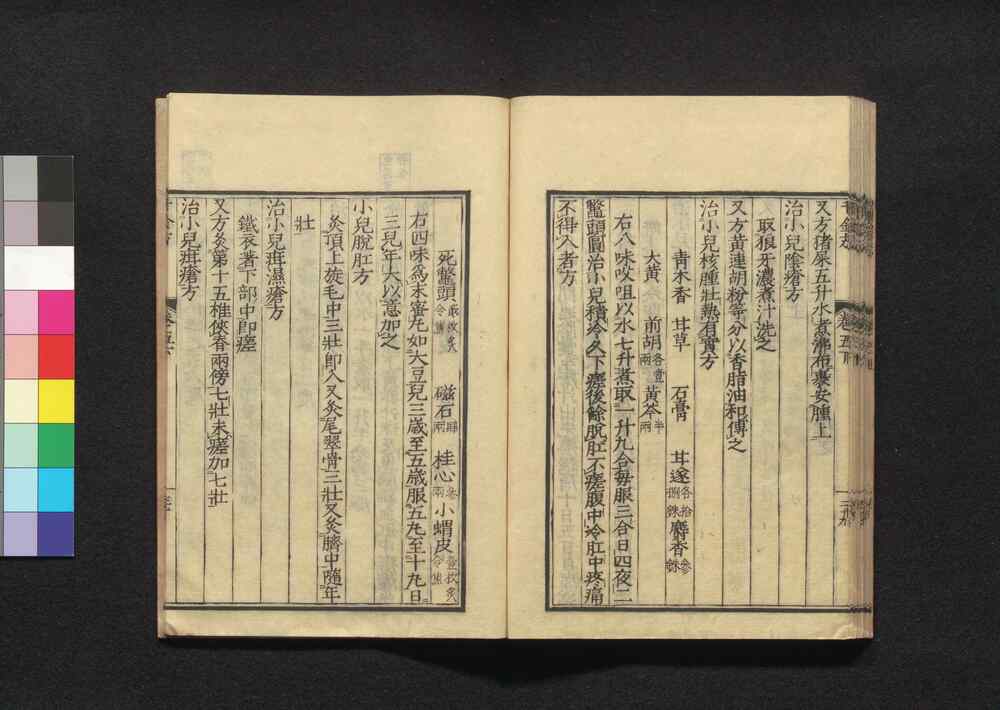 又方猪屎五升水煮沸布裹安腫上
治小兒陰瘡方
取狼牙濃煮汁洗之
又方黄連胡粉等分以香脂油和傅之
治小兒核腫壯熱有實方
青木香 甘草 石膏 甘遂各拾捌銖麝香叁銖
大黄 前胡各壹兩黄芩半兩
右八味㕮咀以水七升煮取一升九合每服三合日四夜二
鼈頭圓治小兒積冷久下瘥後餘脱肛不瘥腹中冷肛中疼痛
不得入者方
死鼈頭貳枚炙令焦 磁石肆兩 桂心叁兩 小蝟皮壹枚炙令焦
右四味爲末蜜丸如大豆兒三歳至五歳服五丸至十丸日
三兒年大以意加之
小兒脱肛方
灸頂上旋毛中三壯即入又灸尾翠骨三壯又灸臍中隨年
壯
治小兒疳濕瘡方
鐵衣著下部中即瘥
又方灸第十五椎俠脊兩傍七壯未瘥加七壯
治小兒疳瘡方